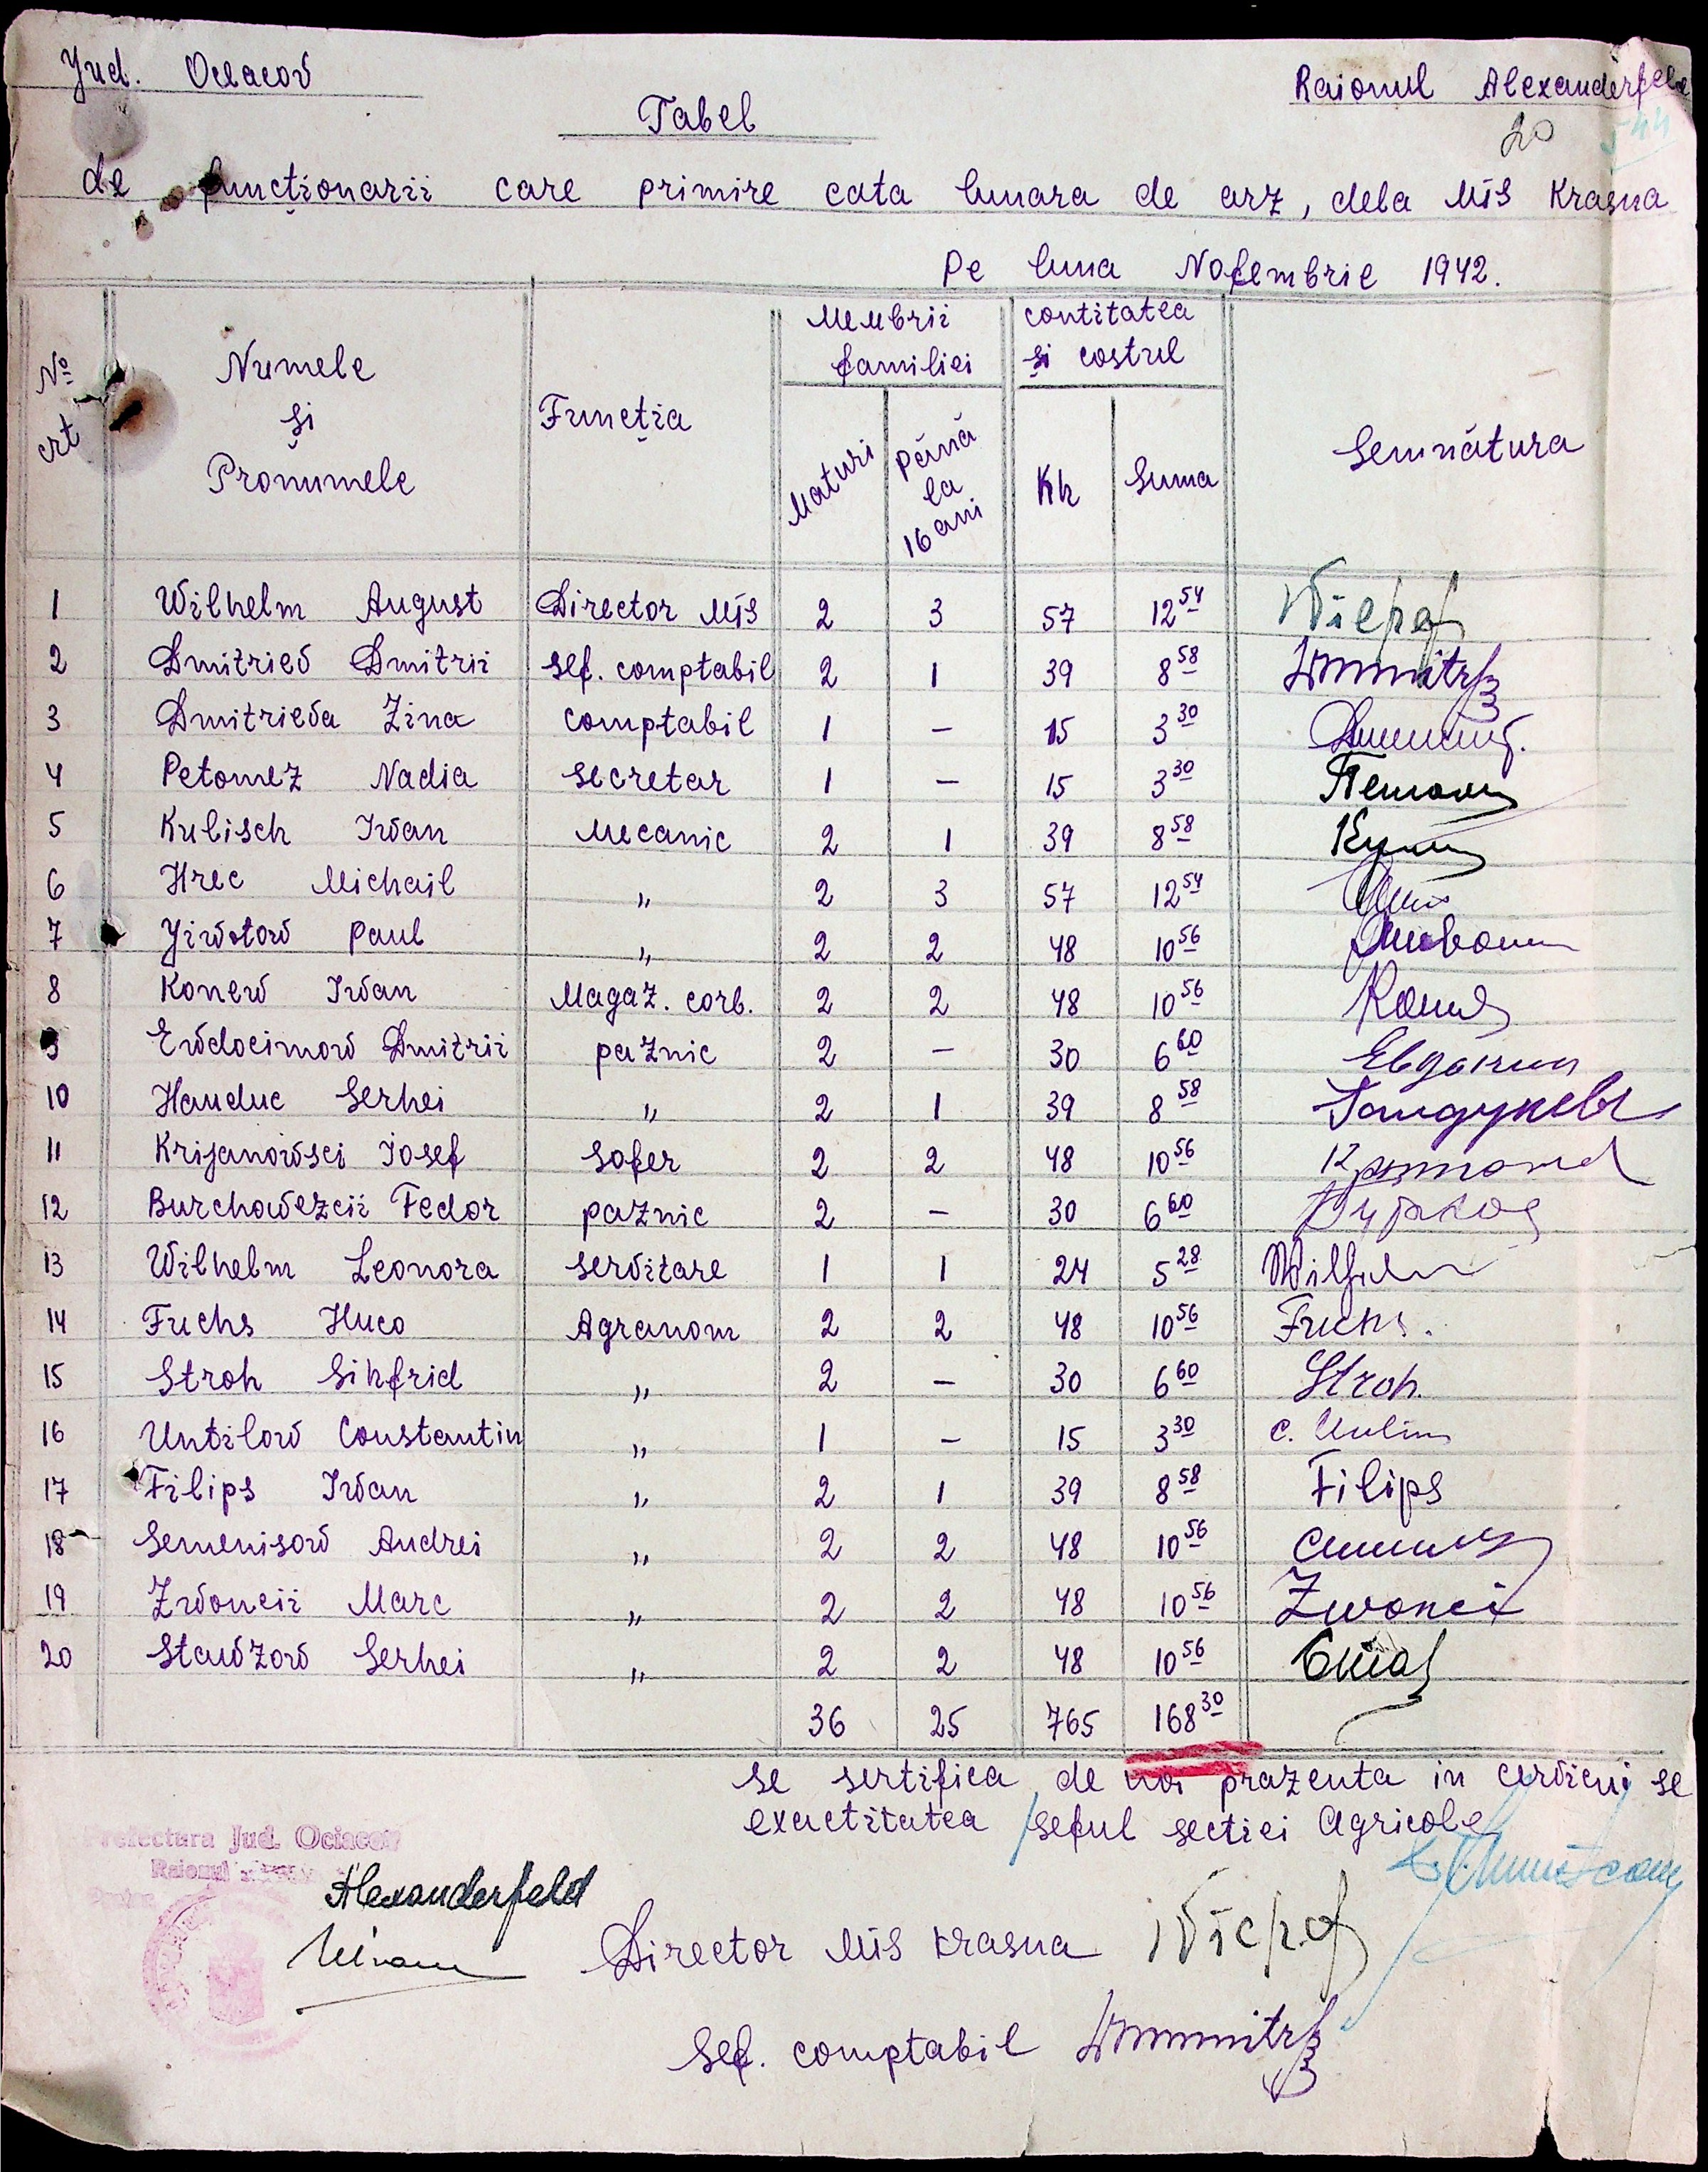 Jud. Oceacov
Raionul Alexanderfeld
20 544
Tabel
de funcționarii care primire cata lunara de arz, dela MTS Krasna
Pe luna Nofembrie 1942.
No crt Numele și Pronumele Funcția Membrii familiei contitatea și costul Semnătura
Maturi până la 16 ani Kh Suma
1 Wilhelm August Director MTS 2 3 57 12 54
2 Dmitriev Dmitrii sef. comptabil 2 1 39 8 58 Dmmitr
3 Dmitrieva Zina comptabil 1 — 15 3 30
4 Petomez Nadia secretar 1 — 15 3 30
5 Kulisch Ivan Mecanic 2 1 39 8 58
6 Hrec Michail " 2 3 57 12 54
7 Jivotov Paul " 2 2 48 10 56
8 Konew Ivan Magaz. corb. 2 2 48 10 56
9 Evdocimov Dmitrii paznic 2 — 30 6 60 Евдоким
10 Hauduc Serhei " 2 1 39 8 58
11 Krijanovsci Iosef Sofer 2 2 48 10 56
12 Burchovezcii Fedor paznic 2 — 30 6 60
13 Wilhelm Leonora servitare 1 1 24 5 28 Wilhelm
14 Fuchs Huco Agranom 2 2 48 10 56 Fuchs.
15 Stroh Sihfrid " 2 — 30 6 60 Stroh.
16 Untilov Constantin " 1 — 15 3 30
17 Filips Ivan " 2 1 39 8 58 Filips
18 Semenisov Andrei " 2 2 48 10 56
19 Zvoncii Marc " 2 2 48 10 56 Zwonci
20 Stavzov Serhei " 2 2 48 10 56
36 25 765 168 30
se sertifica de noi prazenta in cervicii se
exactitatea seful sectiei Agricole
Prefectura Jud. Ociacov
Raionul
Alexanderfeld
Director MTS Krasna
Sef. comptabil Dmmitr